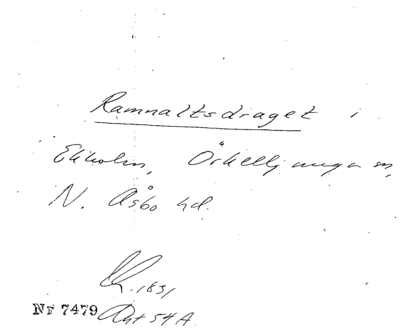 Ramnaltsdraget i
Ekholm, Örkelljunga sn,
N. Åsbo hd.
1831
Nr 7479 Akt 54 A